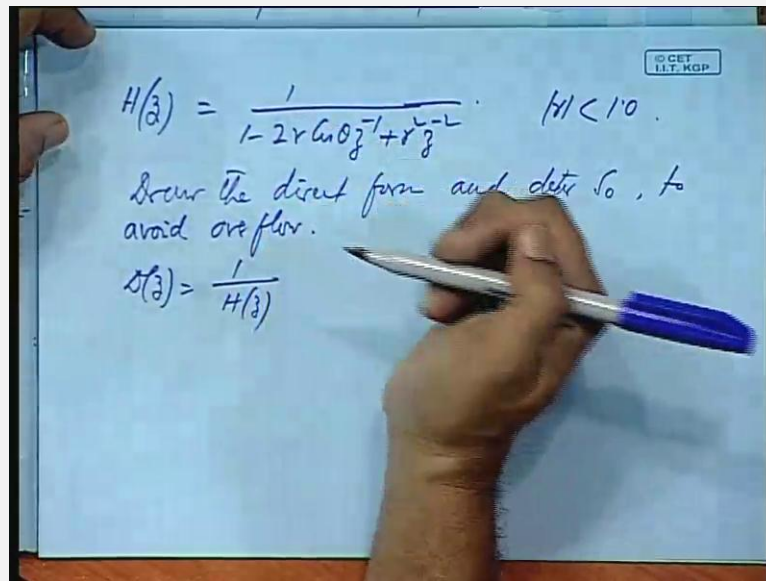 © CET
I.I.T. KGP
H(z) = 1 / (1 - 2r Cos θ z^-1 + r^2 z^-2) . |r| < 1.0 .
Draw the direct form and S0, to
avoid overflow.
D(z) = 1 / H(z)